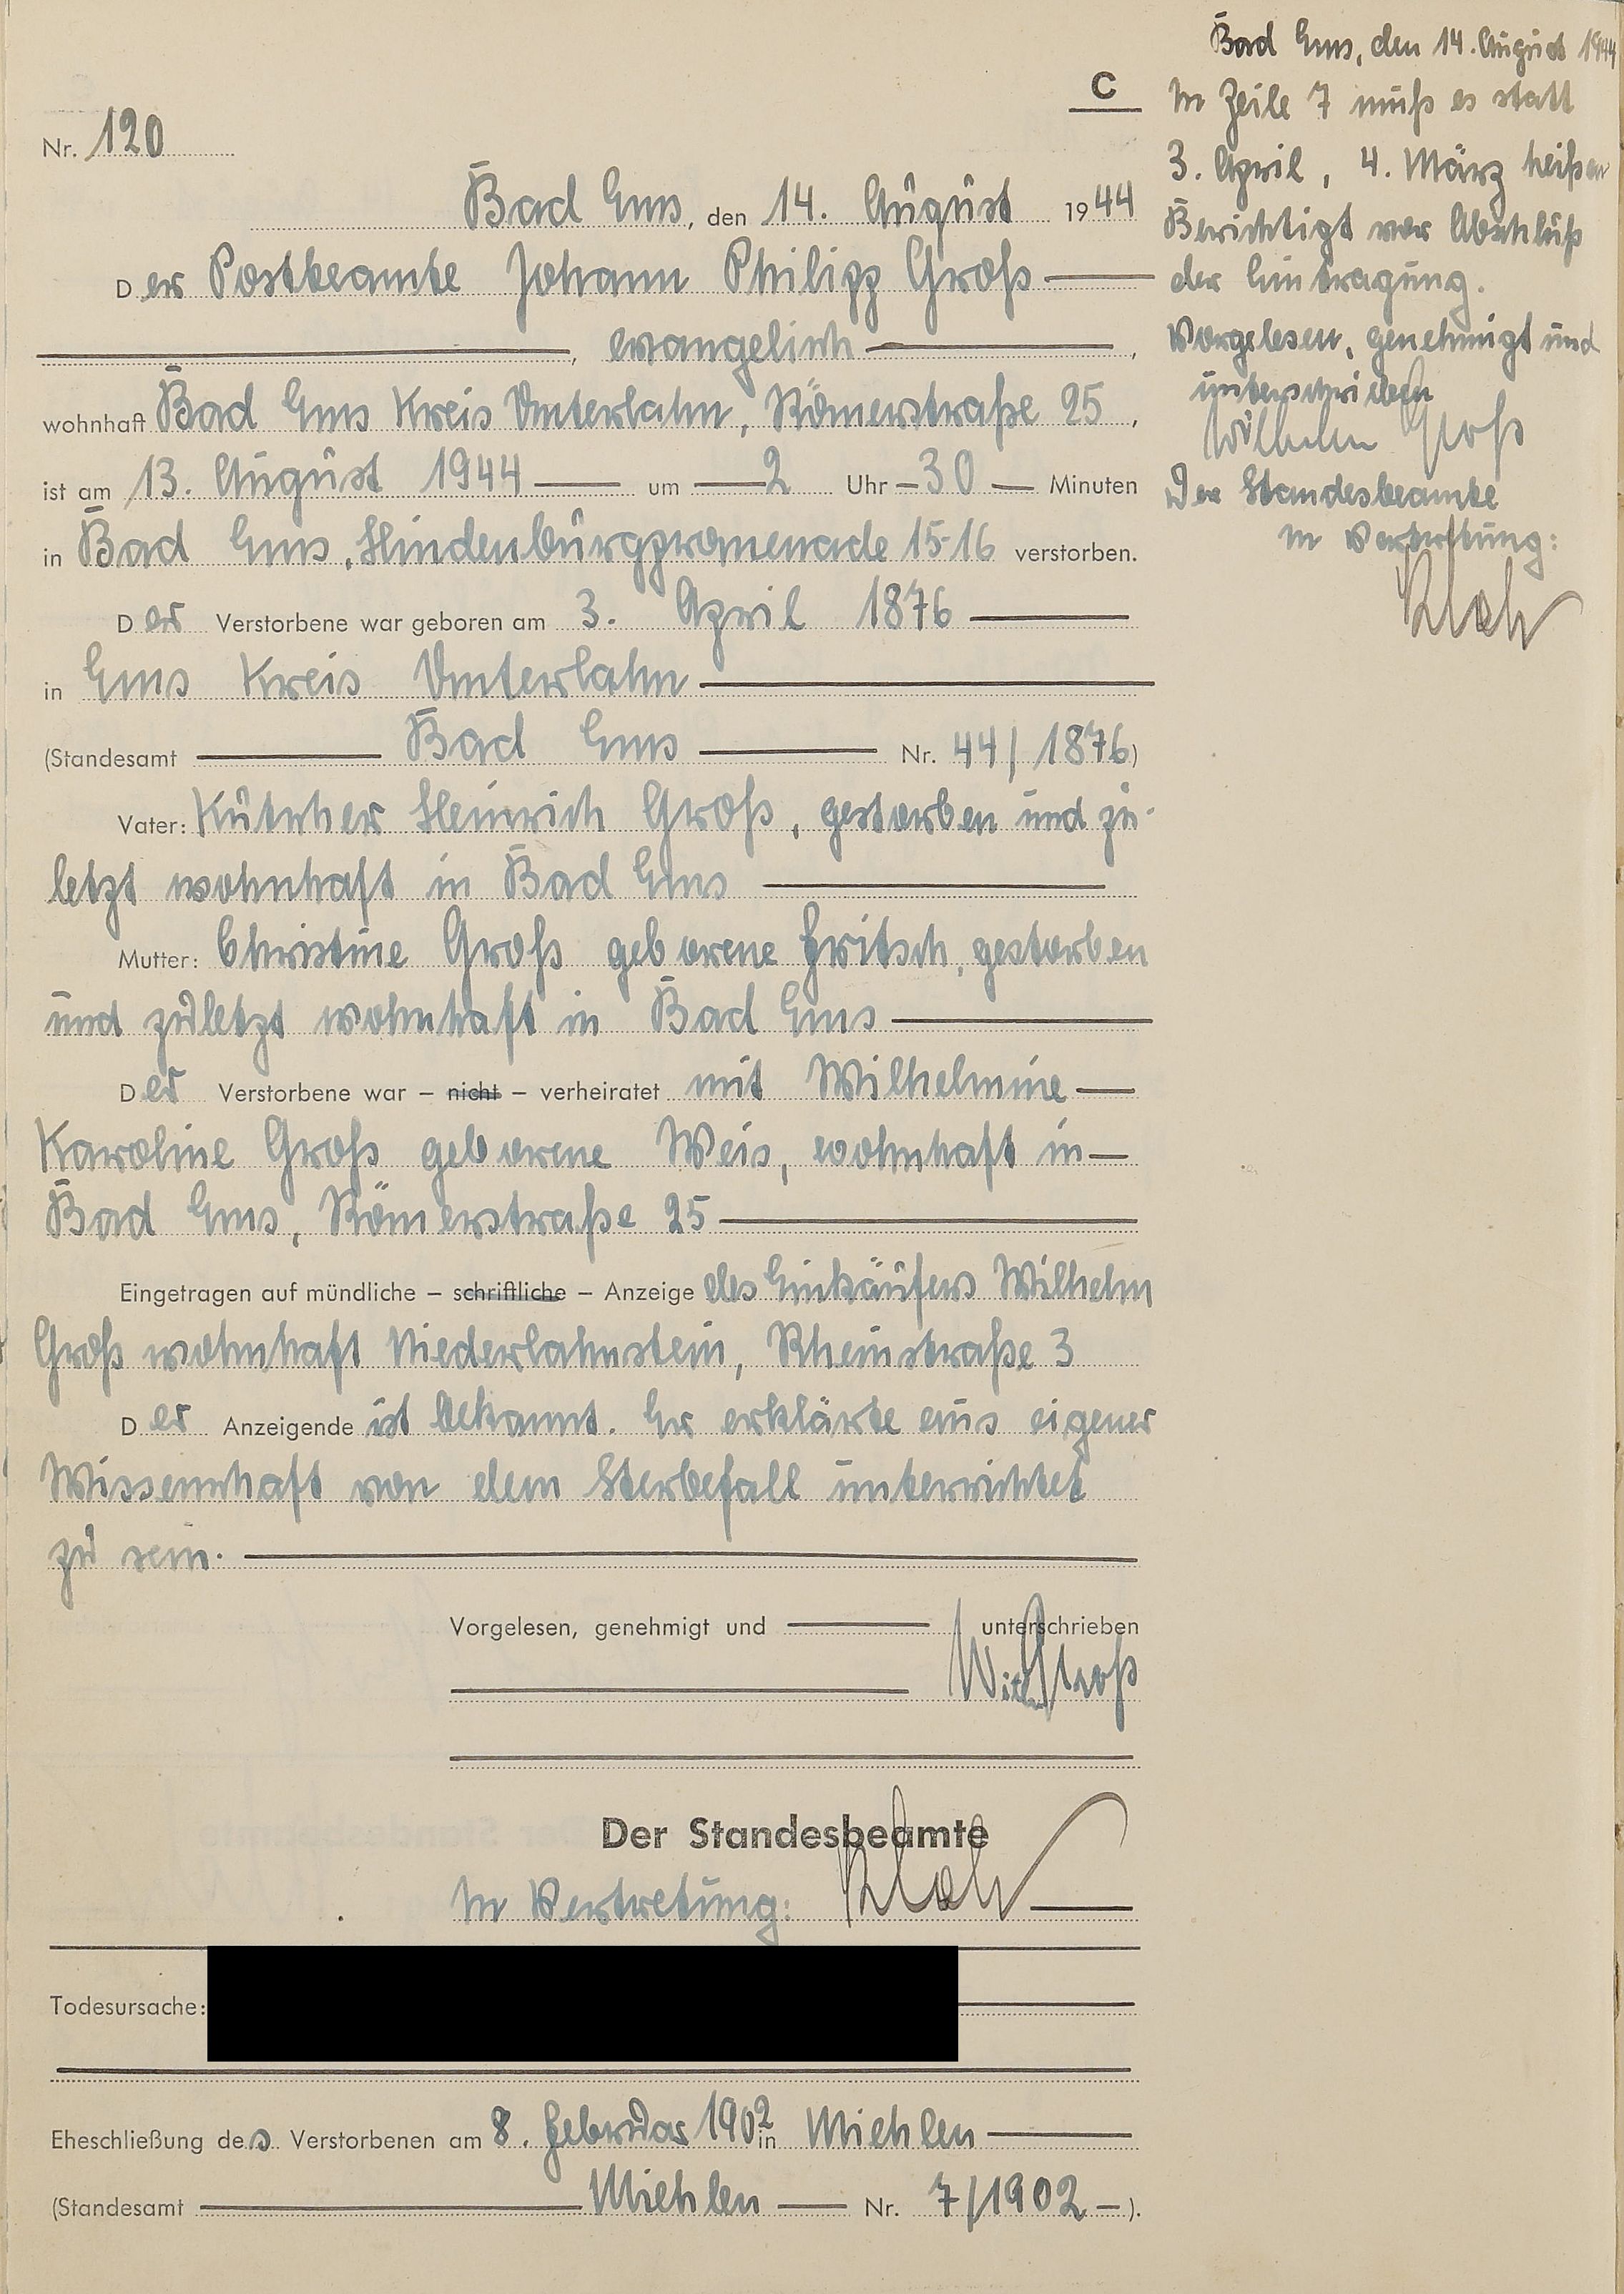 C
Nr. 120
Bad Ems, den 14. August 1944
Der Postbeamte Johann Philipp Groß
, evangelisch ,
wohnhaft Bad Ems Kreis Unterlahn, Römerstraße 25 ,
ist am 13. August 1944 um 2 Uhr 30 Minuten
in Bad Ems, Hindenburgpromenade 15-16 verstorben.
Der Verstorbene war geboren am 3. April 1876
in Ems Kreis Unterlahn
(Standesamt Bad Ems Nr. 44/1876)
Vater: Kutscher Heinrich Groß, gestorben und zu-
letzt wohnhaft in Bad Ems
Mutter: Christine Groß geborene Fritsch, gestorben
und zuletzt wohnhaft in Bad Ems
Der Verstorbene war – nicht – verheiratet mit Wilhelmine
Karoline Groß geborene Weis, wohnhaft in
Bad Ems, Römerstraße 25
Eingetragen auf mündliche – schriftliche – Anzeige des Einkäufers Wilhelm
Groß wohnhaft Niederlahnstein, Rheinstraße 3
Der Anzeigende ist bekannt. Er erklärte aus eigener
Wissenschaft von dem Sterbefall unterrichtet
zu sein.
Vorgelesen, genehmigt und unterschrieben
Wilh Groß
Der Standesbeamte
In Vertretung:
Todesursache:
Eheschließung des Verstorbenen am 8. Februar 1902 in Miehlen
(Standesamt Miehlen Nr. 7/1902 ).
Bad Ems, den 14. August 1944
In Zeile 7 muß es statt
3. April, 4. März heißen
Berichtigt vor Abschluß
der Eintragung.
Vorgelesen, genehmigt und
unterschrieben
Wilhelm Groß
Der Standesbeamte
In Vertretung: